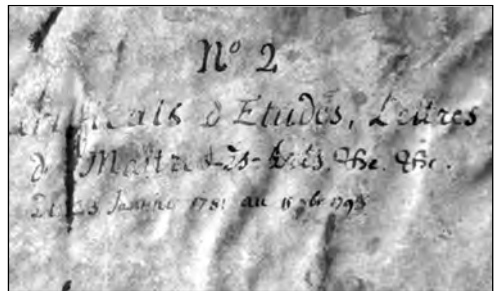 N° 2
Certificats d'Etudes, Lettres
de Maitre-ès-Arts, &c. &c.
Du 23 Janvier 1781 au 15 9bre 1793